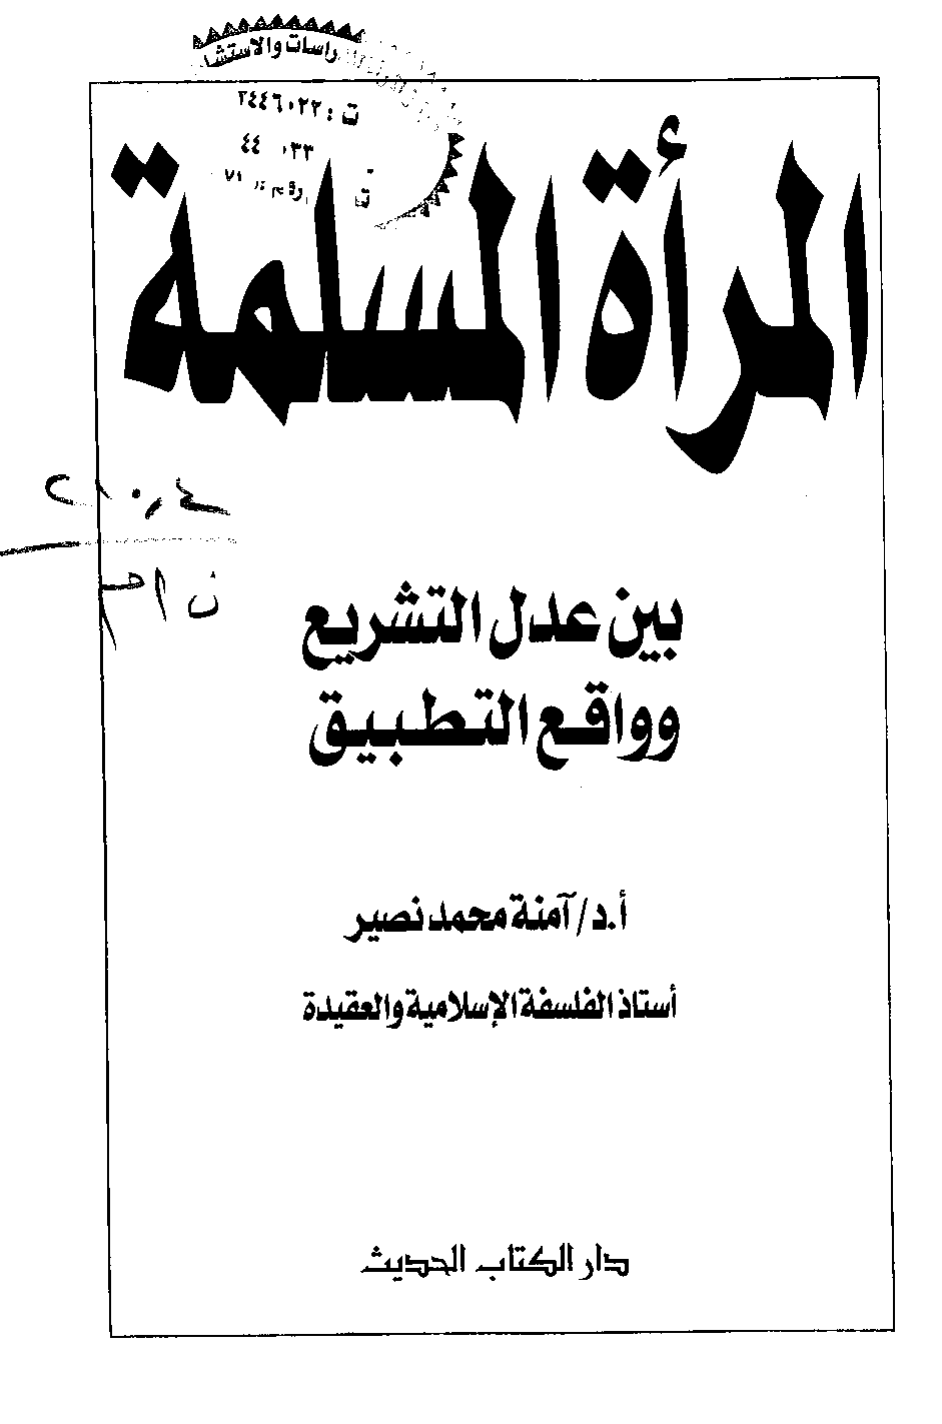 راسات والاستشا
ت : ٢٤٤٦٠٢٢
المرأة المسلمة
٢١٠٫٤
ن ا م
بين عدل التشريع
وواقع التطبيق
أ.د/ آمنة محمد نصير
أستاذ الفلسفة الإسلامية والعقيدة
دار الكتاب الحديث